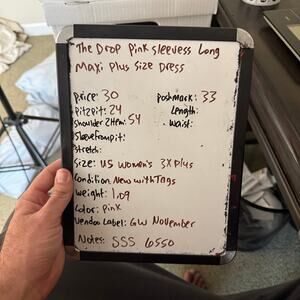 The Drop Pink sleevess Long
Maxi Plus Size Dress
Price: 30 Poshmark: 33
Pit2pit: 24 Length:
Shoulder 2 Hem: 54 Waist:
Sleevefrompit:
Stretch:
Size: US Women's 3X Plus
Condition: New with Tags
Weight: 1.09
Color: Pink
Vendor Label: GW November
Notes: SSS 6550